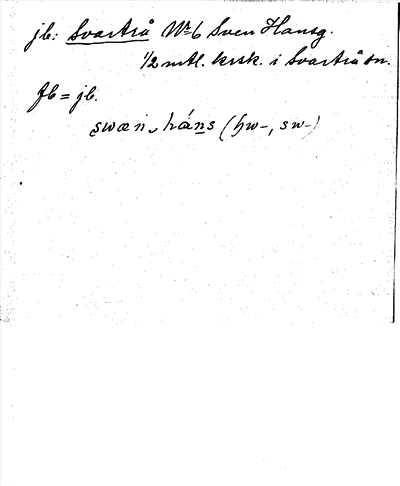 jb.: Svartrå No 6 Sven Hansg.
1/2 mtl. krsk. i Svartrå sn.
Jb = jb.
swæn‿háns (hw-, sw-)